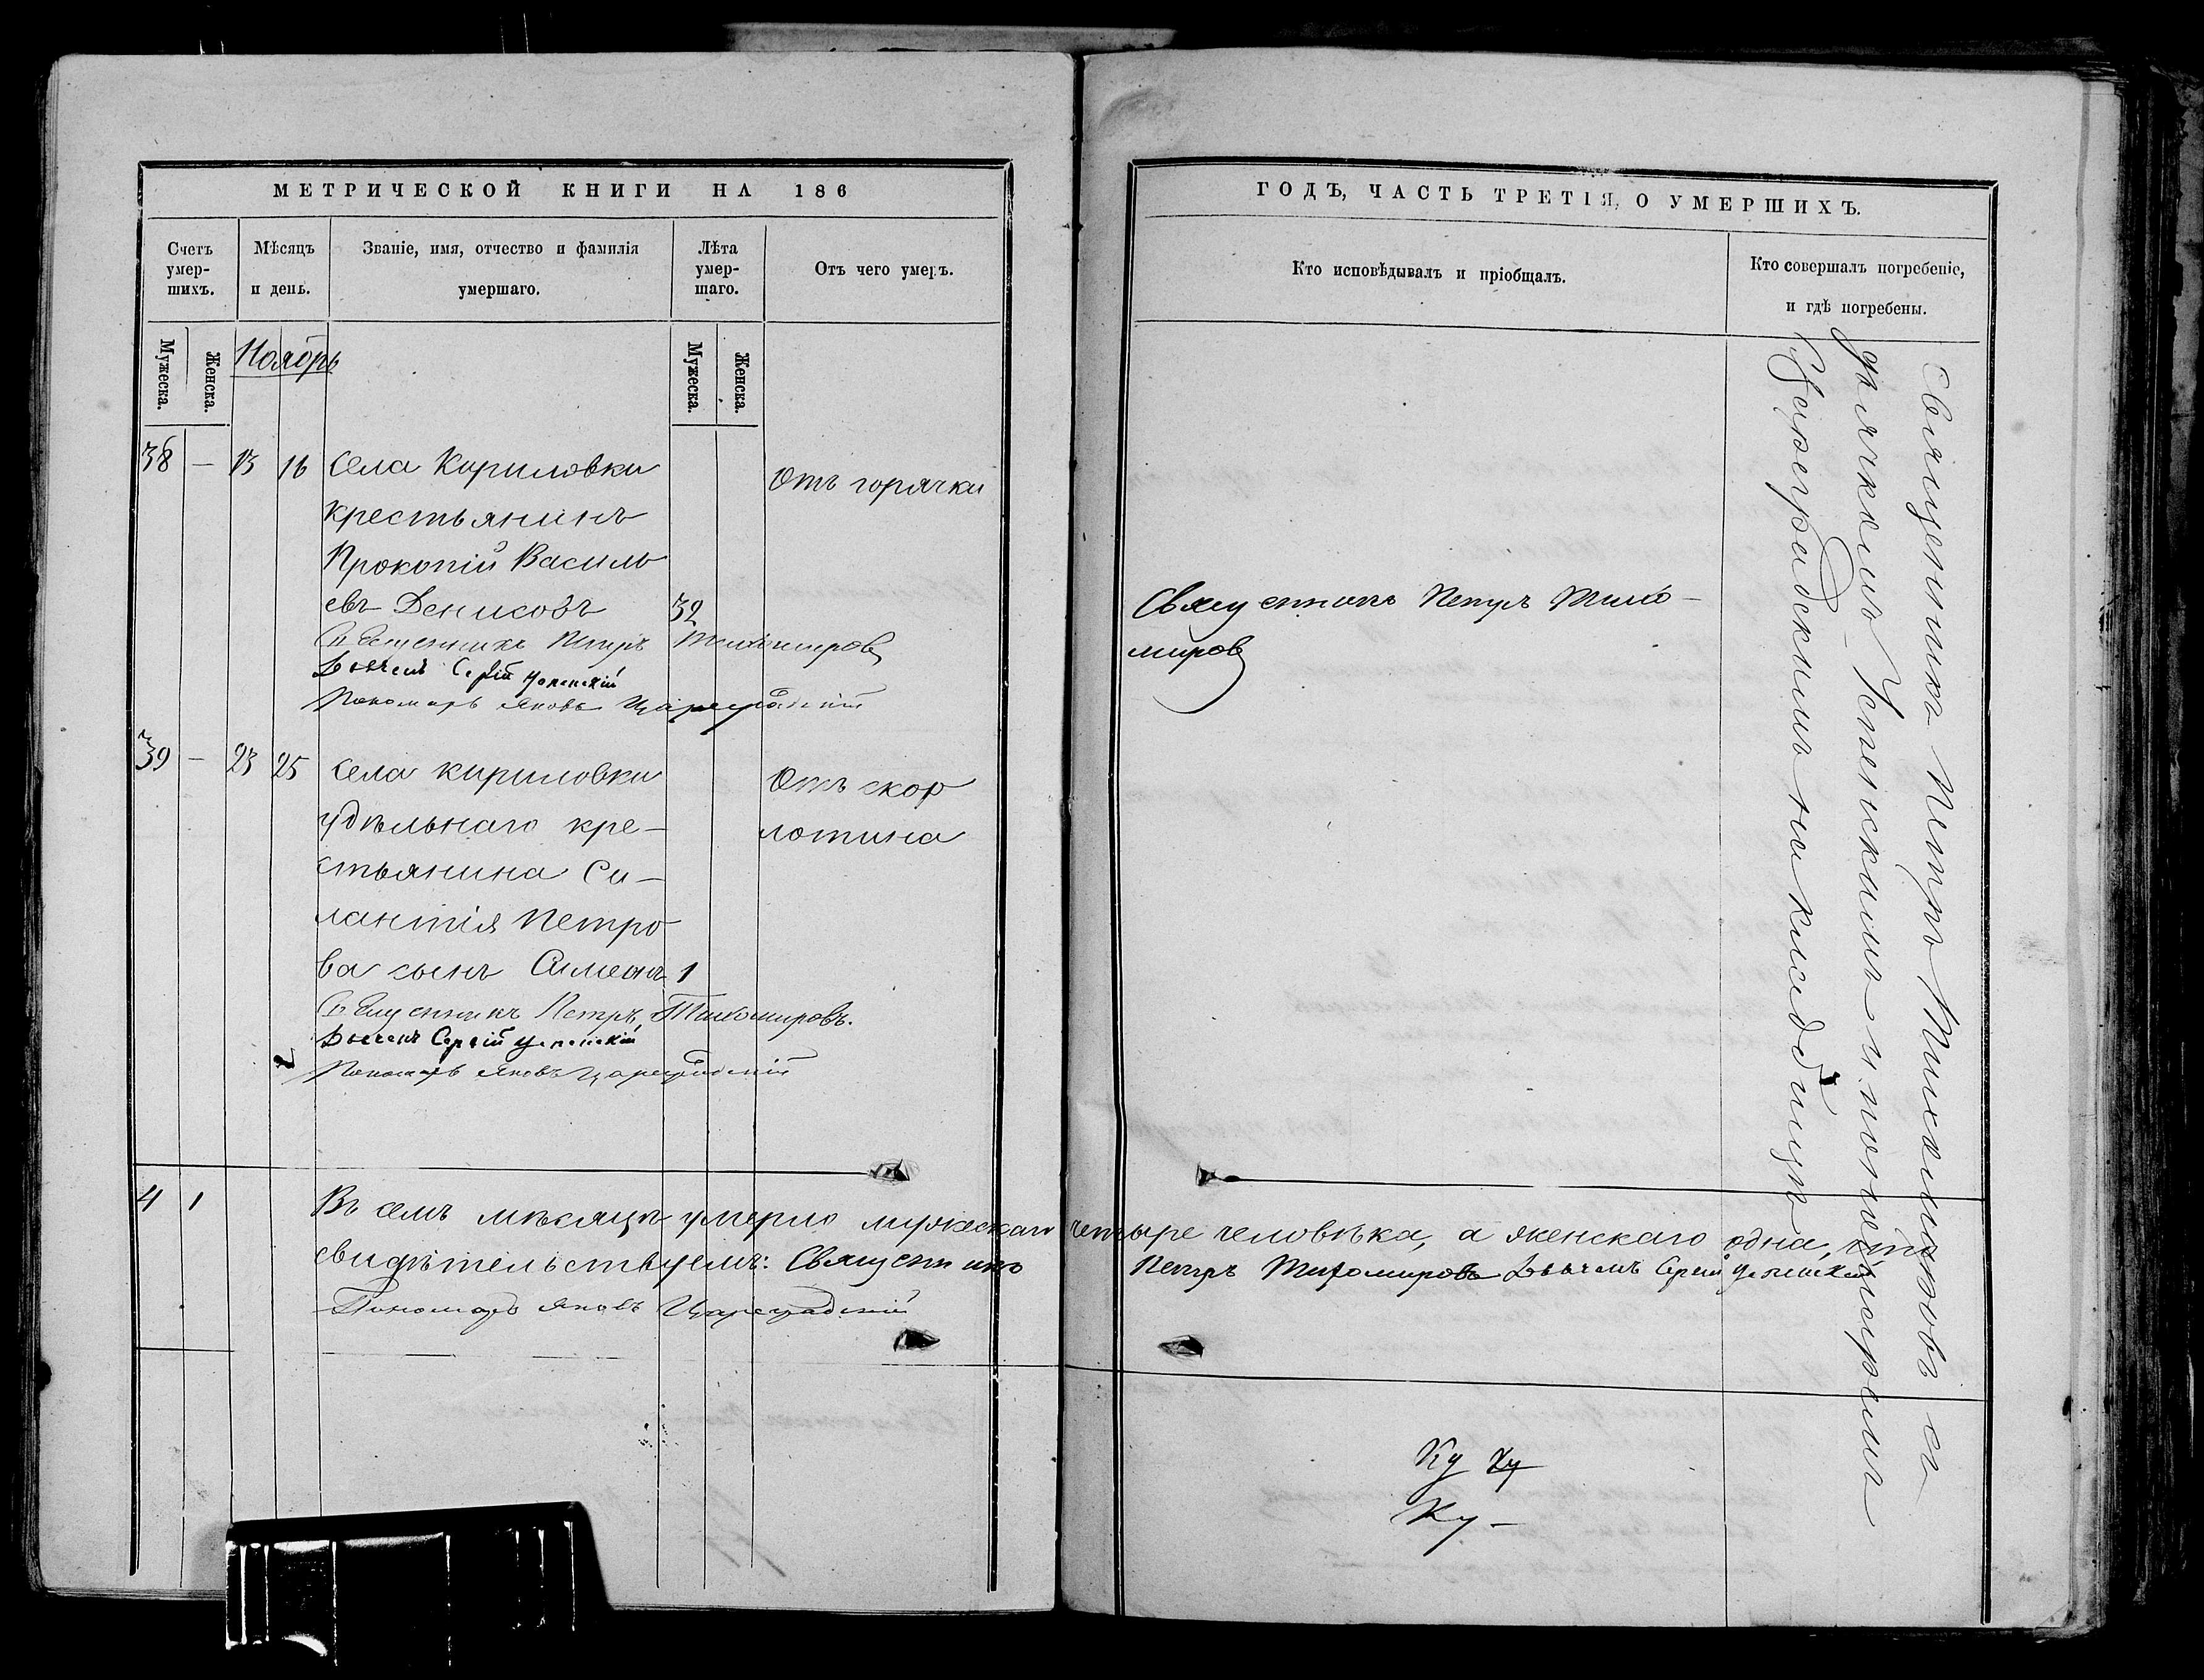 МЕТРИЧЕСКОЙ КНИГИ НА 186
Счетъ умер-шихъ.
Мѣсяцъ и день.
Званіе, имя, отчество и фамилія умершаго.
Лѣта умер-шаго.
Отъ чего умеръ.
Мужеска.
Женска.
Мужеска.
Женска.
Ноябрь
38 — 13 16
Села Кириловки
крестьянинъ
Прокопій Василь
евъ Денисовъ
32
Отъ горячки
Священникъ Петръ Тихомировъ
Дьячекъ Сергій Успенскій
Пономарь Яковъ Цареградскій
39 — 23 25
Села Кириловки
удѣльнаго кре-
стьянина Си-
лантія Петро
ва сынъ Симеонъ
1
Отъ скор
лотина
Священникъ Петръ Тихомировъ.
Дьячекъ Сергій Успенскій
Пономарь Яковъ Цареградскій
4 1
Въ семъ мѣсяцѣ умерло мужескаго четыре человѣка, а женскаго одна, что
свидѣтельствуемъ: Священникъ Петръ Тихомировъ Дьячекъ Сергій Успенскій
Пономарь Яковъ Цареградскій
ГОДЪ, ЧАСТЬ ТРЕТІЯ, О УМЕРШИХЪ.
Кто исповѣдывалъ и пріобщалъ.
Кто совершалъ погребеніе,
и гдѣ погребены.
Священникъ Петръ Тихо-
мировъ
Священникъ Петръ Тихомировъ съ
дьячкомъ Успенскимъ и пономаремъ
Цареградскимъ на кладбищѣ
Ку Ку
Ку —